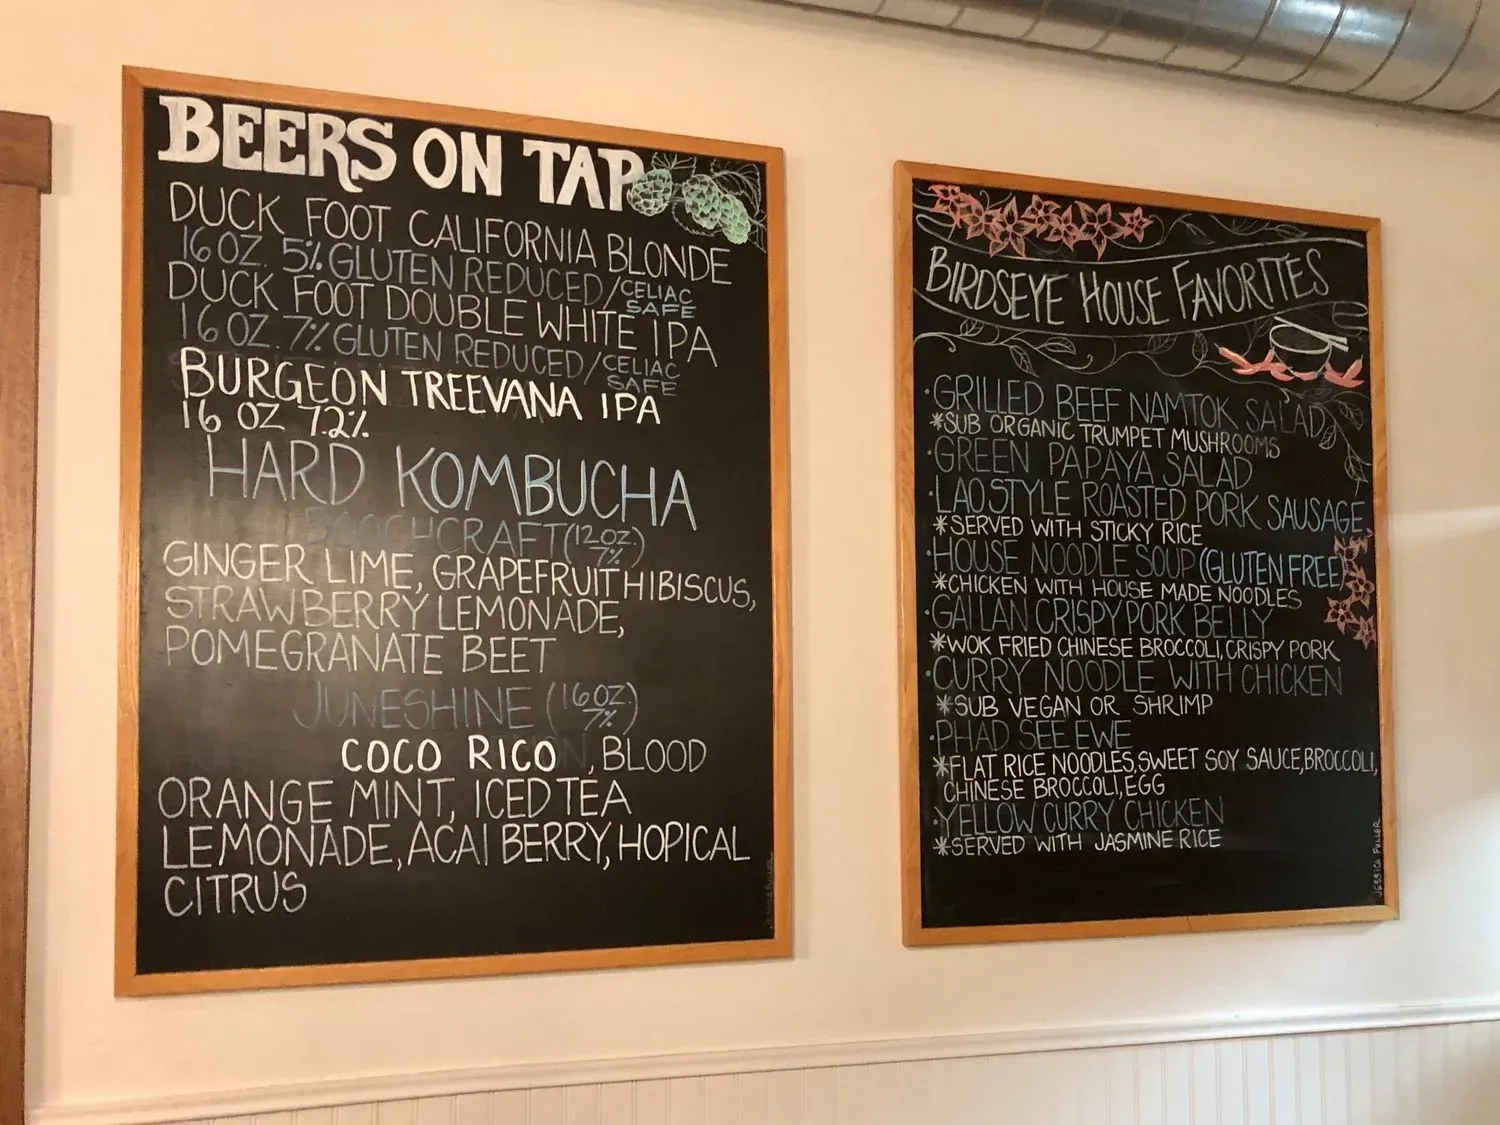 BEERS ON TAP
DUCK FOOT CALIFORNIA BLONDE
16 OZ. 5% GLUTEN REDUCED/CELIAC SAFE
DUCK FOOT DOUBLE WHITE IPA
16 OZ. 7% GLUTEN REDUCED/CELIAC SAFE
BURGEON TREEVANA IPA
16 OZ 7.2%
HARD KOMBUCHA
BOOCHCRAFT (12OZ. 7%)
GINGER LIME, GRAPEFRUIT HIBISCUS,
STRAWBERRY LEMONADE,
POMEGRANATE BEET
JUNESHINE (16OZ. 7%)
COCO RICO, BLOOD
ORANGE MINT, ICED TEA
LEMONADE, ACAI BERRY, HOPICAL
CITRUS
JESSICA FULLER
BIRDSEYE HOUSE FAVORITES
·GRILLED BEEF NAMTOK SALAD
*SUB ORGANIC TRUMPET MUSHROOMS
·GREEN PAPAYA SALAD
·LAO STYLE ROASTED PORK SAUSAGE
*SERVED WITH STICKY RICE
·HOUSE NOODLE SOUP (GLUTEN FREE)
*CHICKEN WITH HOUSE MADE NOODLES
·GAI LAN CRISPY PORK BELLY
*WOK FRIED CHINESE BROCCOLI, CRISPY PORK
·CURRY NOODLE WITH CHICKEN
*SUB VEGAN OR SHRIMP
·PHAD SEE EWE
*FLAT RICE NOODLES, SWEET SOY SAUCE, BROCCOLI,
CHINESE BROCCOLI, EGG
·YELLOW CURRY CHICKEN
*SERVED WITH JASMINE RICE
JESSICA FULLER